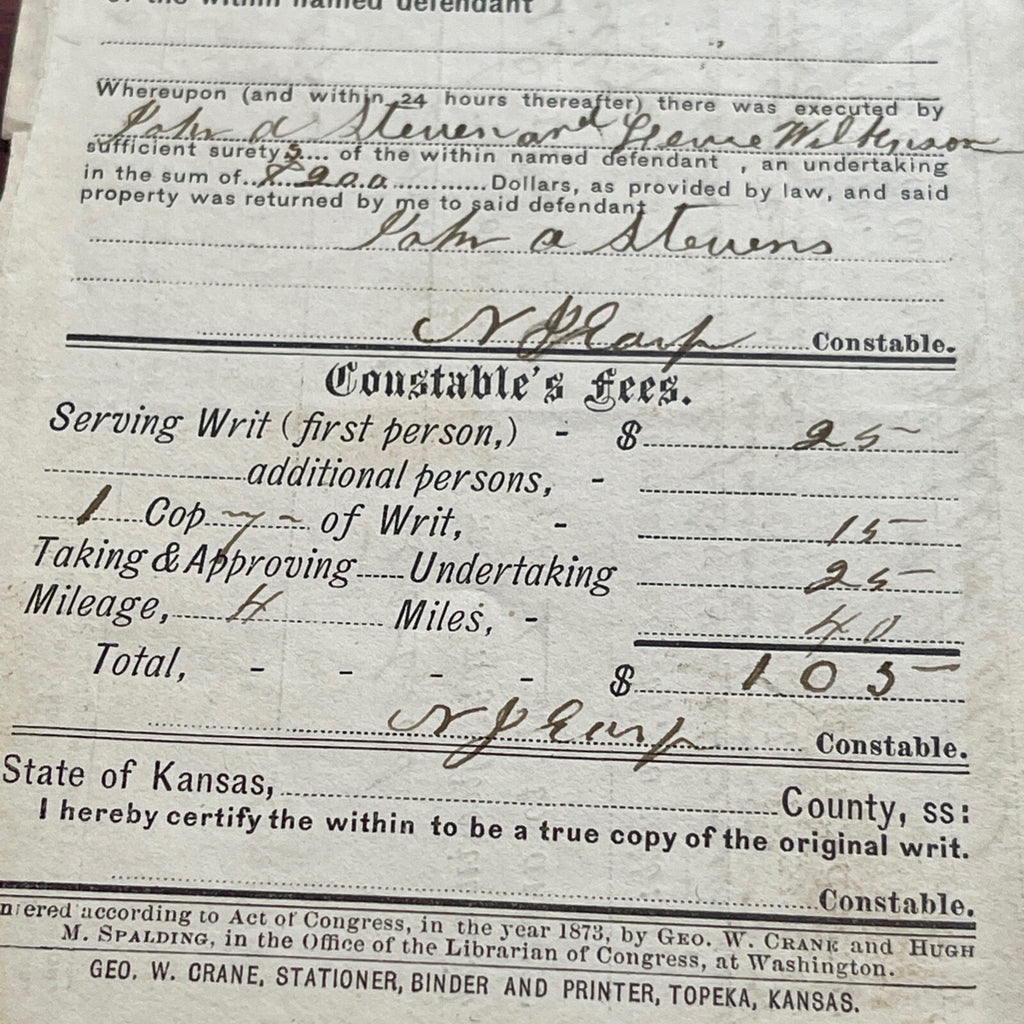 of the within named defendant
Whereupon (and within 24 hours thereafter) there was executed by
John a Steven and Wilkinson
sufficient suretys.... of the within named defendant , an undertaking
in the sum of.. ............Dollars, as provided by law, and said
property was returned by me to said defendant
John a Stevens
N J Earp Constable.
Constable's Fees.
Serving Writ (first person,) - $ 25
additional persons, -
1 Copy - of Writ, - 15
Taking & Approving Undertaking 25
Mileage, 4 Miles, - 40
Total, - - - - $ 105
N J Earp Constable.
State of Kansas, County, ss:
I hereby certify the within to be a true copy of the original writ.
Constable.
ntered according to Act of Congress, in the year 1873, by GEO. W. CRANE and HUGH
M. SPALDING, in the Office of the Librarian of Congress, at Washington.
GEO. W. CRANE, STATIONER, BINDER AND PRINTER, TOPEKA, KANSAS.